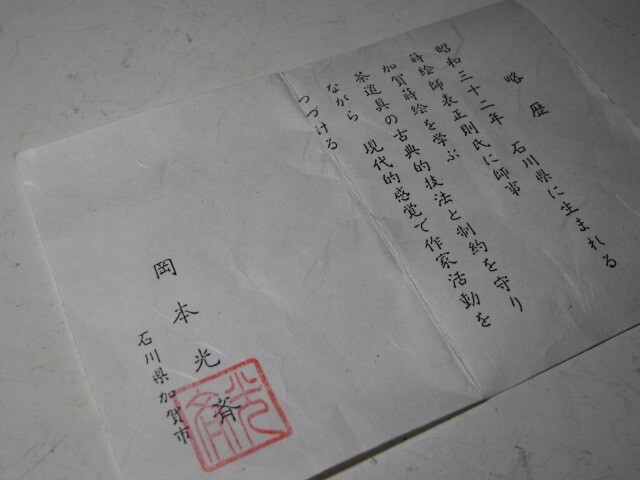 略歴
昭和三十二年 石川県に生まれる
蒔絵師表正則氏に師事
加賀蒔絵を学ぶ
茶道具の古典的技法と制約を守り
ながら 現代的感覚で作家活動を
つづける
岡本光斉
石川県加賀市
光斉